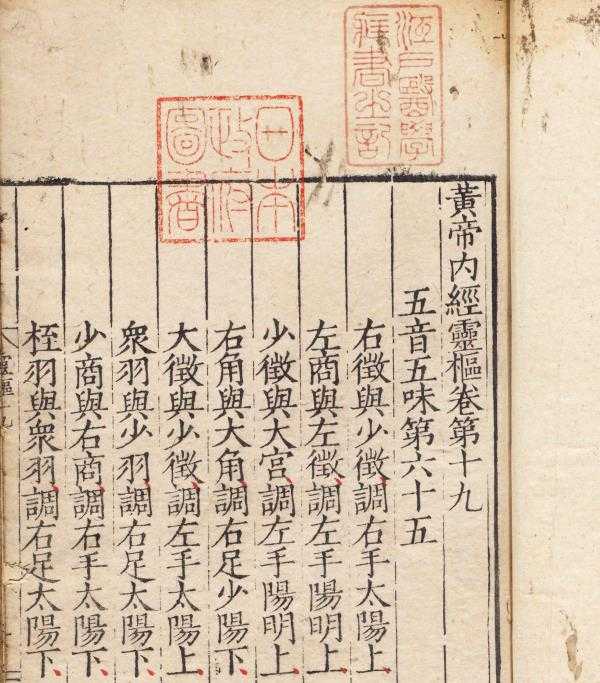 江戶醫學
藏書之記
日本
政府
圖書
黃帝内經靈樞卷第十九
五音五味第六十五
右徵與少徵、調右手太陽上、
左商與左徵、調左手陽明上、
少徵與大宮、調左手陽明上、
右角與大角、調右足少陽下、
大徵與少徵、調左手太陽上、
衆羽與少羽、調右足太陽下、
少商與右商、調右手太陽下、
桎羽與衆羽、調右足太陽下、
靈樞十九